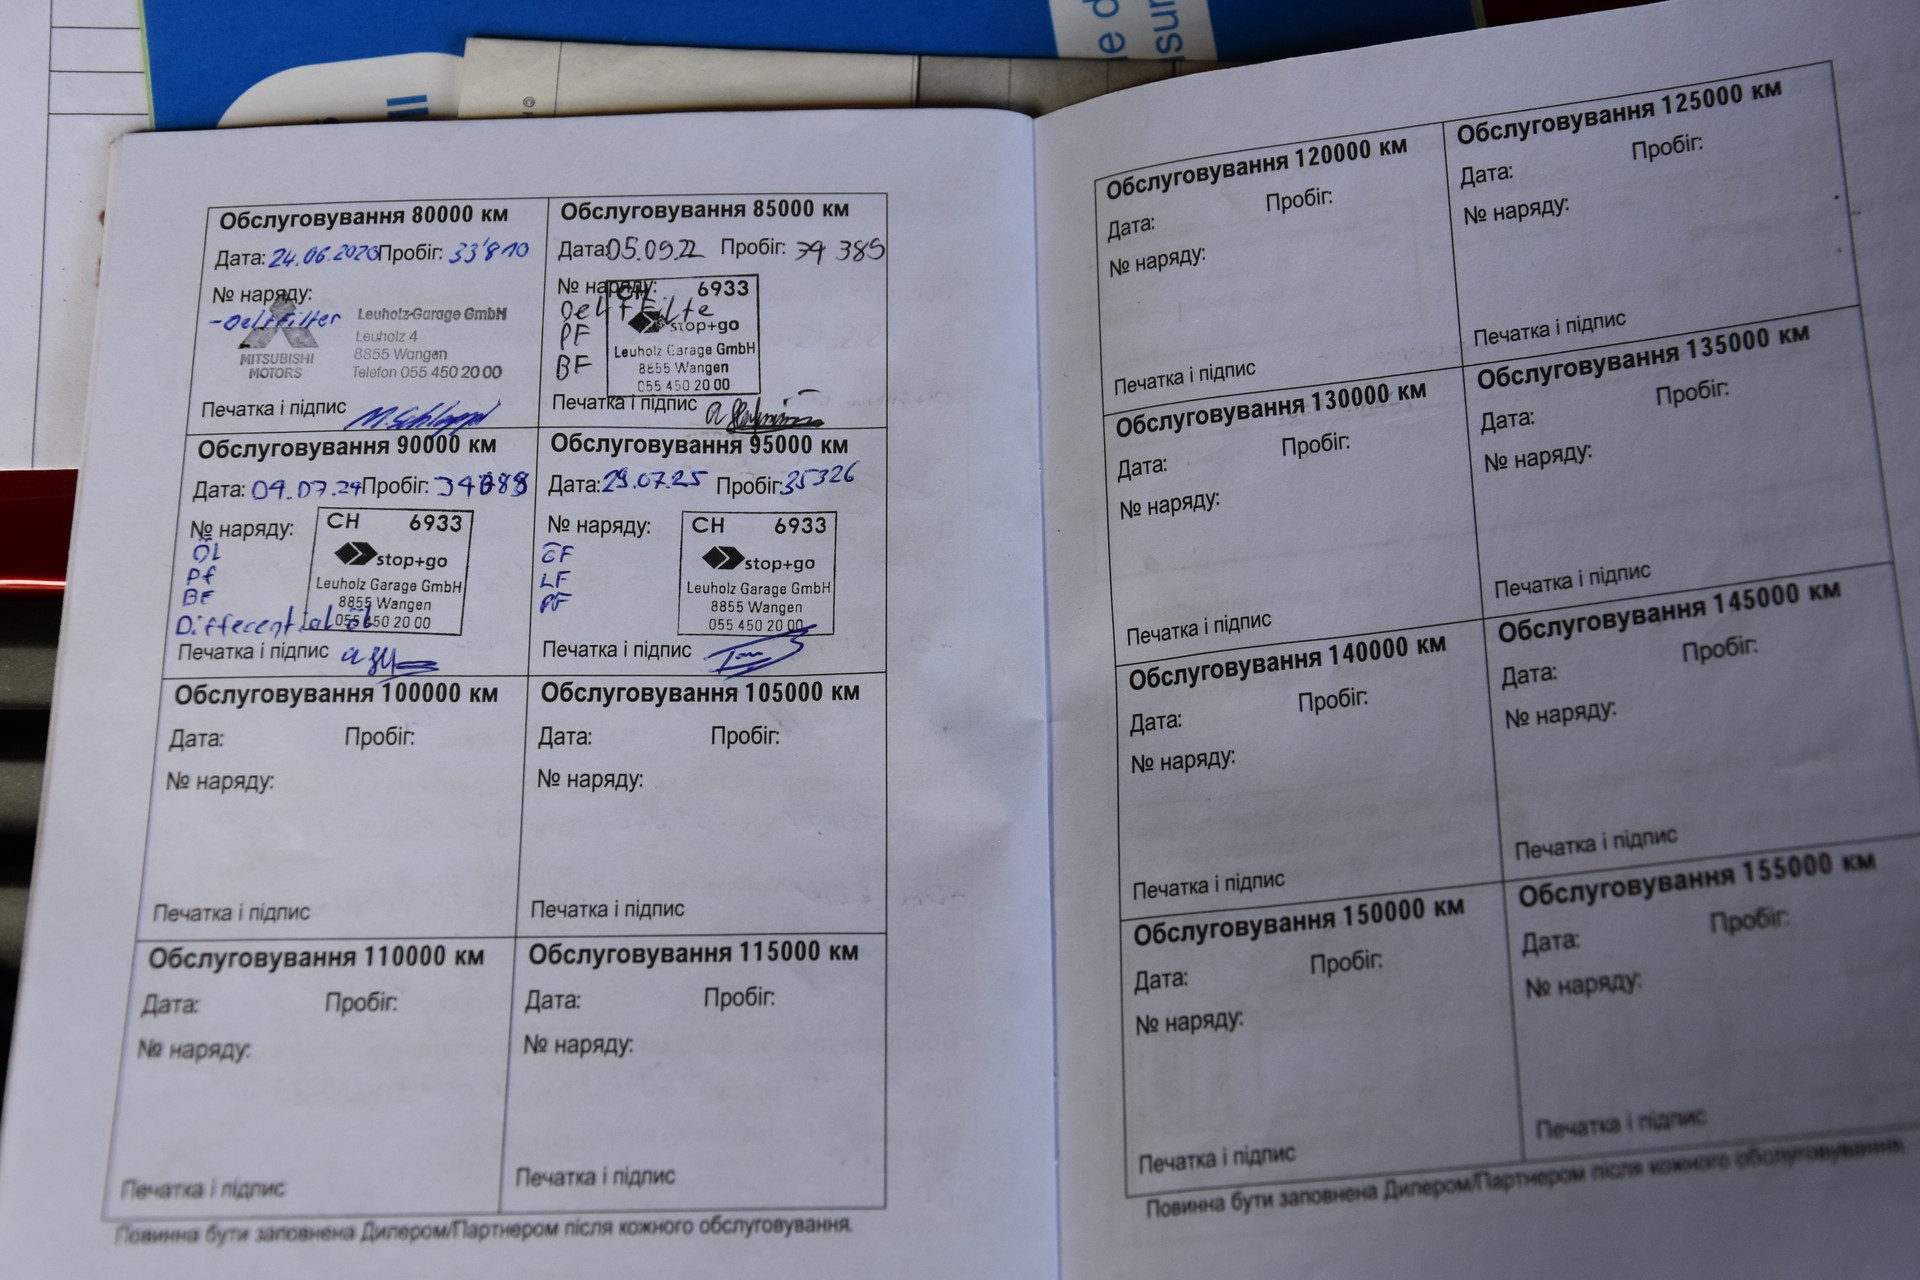 Обслуговування 80000 км
Дата: 24.06.2020 Пробіг: 33'810
№ наряду:
-Oel+Filter
MITSUBISHI
MOTORS
Leuholz-Garage GmbH
Leuholz 4
8855 Wangen
Telefon 055 450 20 00
Печатка і підпис
Обслуговування 85000 км
Дата: 05.09.22 Пробіг: 34 389
№ наряду:
Oel + Filte
PF
BF
CH 6933
stop+go
Leuholz Garage GmbH
8855 Wangen
055 450 20 00
Печатка і підпис
Обслуговування 90000 км
Дата: 04.07.24 Пробіг:
№ наряду:
ÖL
Pf
BF
Differential öl
CH 6933
stop+go
Leuholz Garage GmbH
8855 Wangen
055 450 20 00
Печатка і підпис
Обслуговування 95000 км
Дата: 29.07.25 Пробіг: 35326
№ наряду:
ÖF
LF
PF
CH 6933
stop+go
Leuholz Garage GmbH
8855 Wangen
055 450 20 00
Печатка і підпис
Обслуговування 100000 км
Дата: Пробіг:
№ наряду:
Печатка і підпис
Обслуговування 105000 км
Дата: Пробіг:
№ наряду:
Печатка і підпис
Обслуговування 110000 км
Дата: Пробіг:
№ наряду:
Печатка і підпис
Обслуговування 115000 км
Дата: Пробіг:
№ наряду:
Печатка і підпис
Повинна бути заповнена Дилером/Партнером після кожного обслуговування.
Обслуговування 120000 км
Дата: Пробіг:
№ наряду:
Печатка і підпис
Обслуговування 125000 км
Дата: Пробіг:
№ наряду:
Печатка і підпис
Обслуговування 130000 км
Дата: Пробіг:
№ наряду:
Печатка і підпис
Обслуговування 135000 км
Дата: Пробіг:
№ наряду:
Печатка і підпис
Обслуговування 140000 км
Дата: Пробіг:
№ наряду:
Печатка і підпис
Обслуговування 145000 км
Дата: Пробіг:
№ наряду:
Печатка і підпис
Обслуговування 150000 км
Дата: Пробіг:
№ наряду:
Печатка і підпис
Обслуговування 155000 км
Дата: Пробіг:
№ наряду:
Печатка і підпис
Повинна бути заповнена Дилером/Партнером після кожного обслуговування.